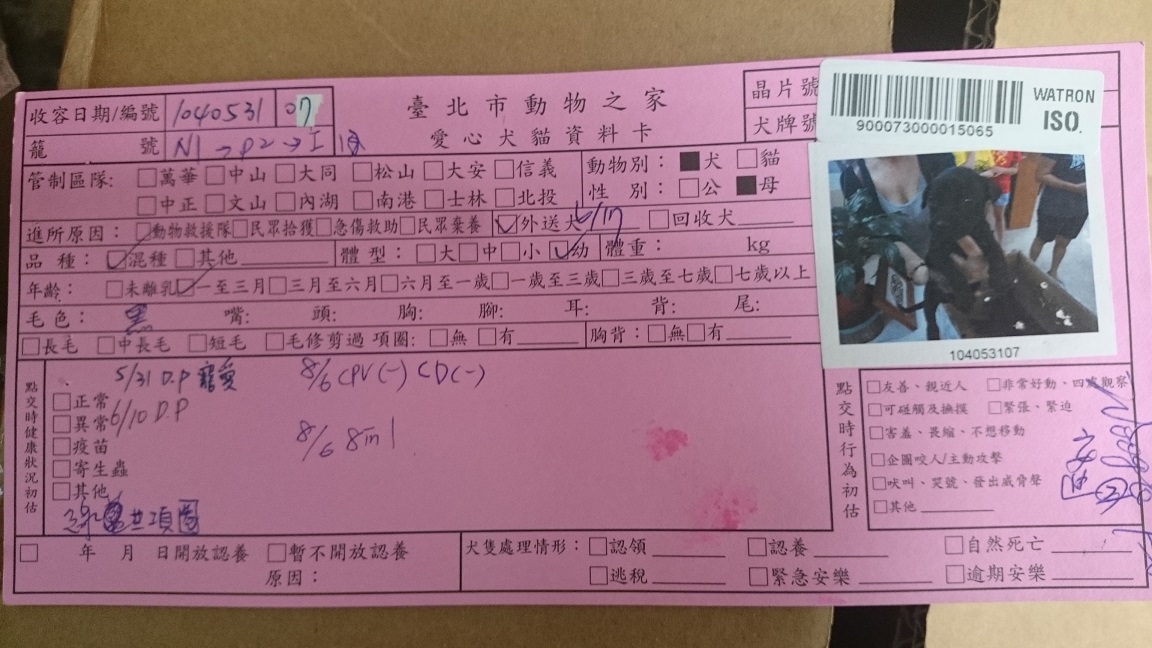 收容日期/編號 1040531 07
臺北市動物之家
愛心犬貓資料卡
晶片號
犬牌號
900073000015065
WATRON
ISO.
籠 號 N1→P2→I
管制區隊: □萬華 □中山 □大同 □松山 □大安 □信義
□中正 □文山 □內湖 □南港 □士林 □北投
動物別：■犬 □貓
性 別：□公 ■母
進所原因：□動物救援隊□民眾拾獲□急傷救助□民眾棄養 ☑外送犬 6/17 □回收犬
品種：☑混種 □其他 體型：□大□中□小☑幼 體重： kg
年齡：□未離乳☑一至三月□三月至六月□六月至一歲□一歲至三歲□三歲至七歲□七歲以上
毛色：黑 嘴: 頭: 胸: 腳: 耳: 背: 尾:
□長毛 □中長毛 □短毛 □毛修剪過 項圈:□無 □有 胸背:□無□有
104053107
點交時健康狀況初估
5/31 D.P 寵愛
8/6 CPV(-) CD(-)
□正常
□異常 6/10 D.P
8/6 8in1
□疫苗
□寄生蟲
□其他
點交時行為初估
□友善、親近人 □非常好動、四處觀察
□可碰觸及撫摸 □緊張、緊迫
□害羞、畏縮、不想移動
□企圖咬人/主動攻擊
□吠叫、哭號、發出威脅聲
□其他
□ 年 月 日開放認養 □暫不開放認養
原因：
犬隻處理情形：□認領 □認養 □自然死亡
□逃脫 □緊急安樂 □逾期安樂